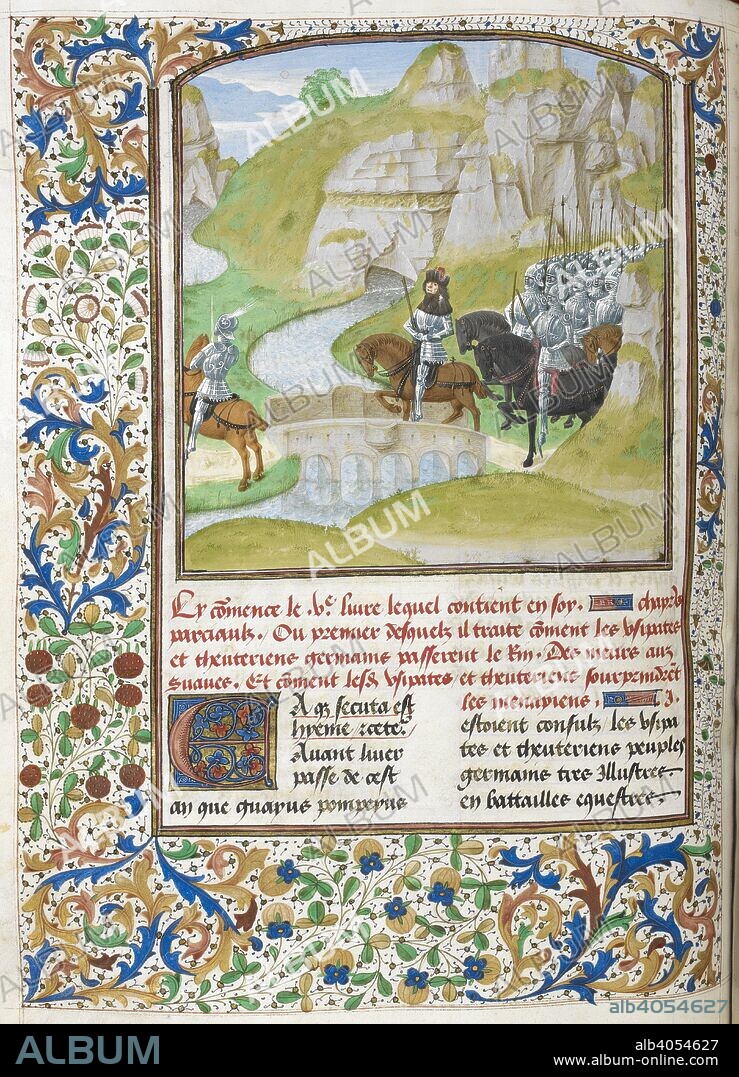 Cy cõmence le .Ve. livre lequel contient en soy. chapr̃s
parciaulx. Ou premier desquelz il traite cõment les vsipates
et theuteriens germains passerent le Rin. Des meurs aux
suaues. Et cõment lesd̃ vsipates et theuteriens sourprindrẽt
les menapiens. .J.
EA q̃ secuta est
hyeme
Auant liuer
passe de cest
an que pompeyus
estoient consulz les vsipa
tes et theuteriens peuples
germains tres Illustres
en battailles equestres.
ALBUM
alb4054627
ALBUM
alb4054627
www.album-online.com